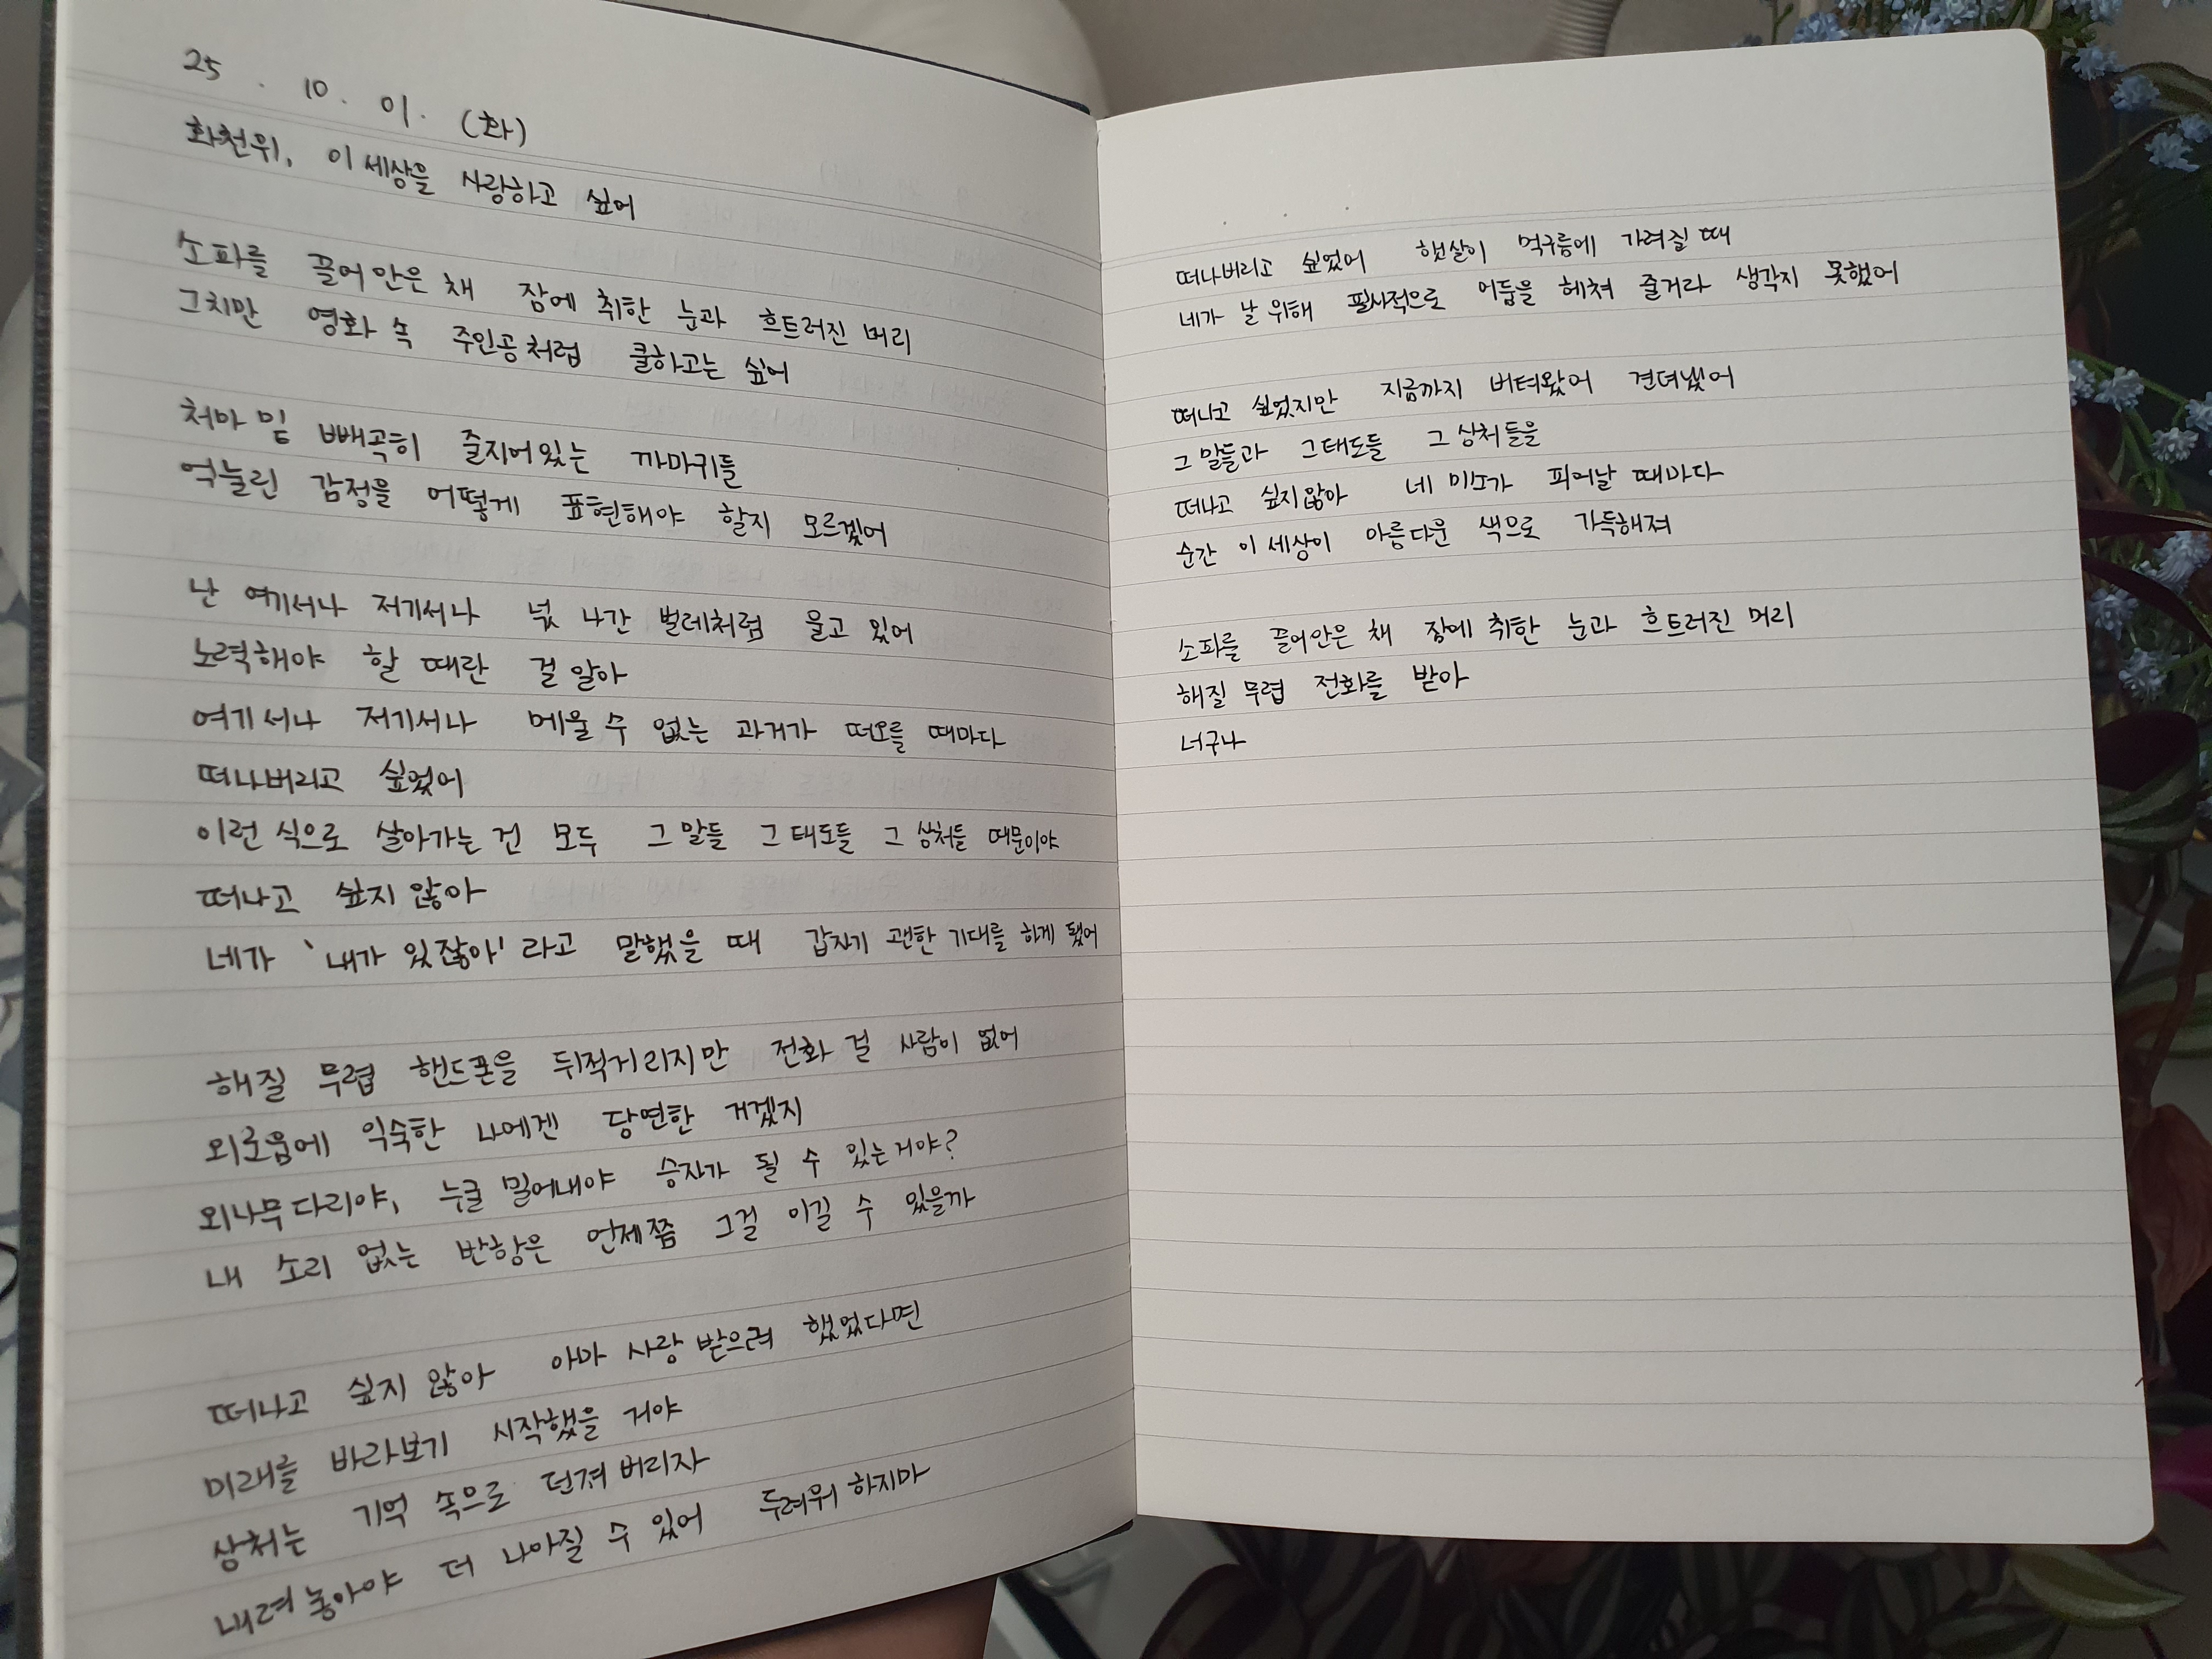 25 . 10. 01. (화)
화천위, 이 세상을 사랑하고 싶어
소파를 끌어안은 채 잠에 취한 눈과 흐트러진 머리
그치만 영화 속 주인공처럼 쿨하고는 싶어
처마 밑 빼곡히 줄지어있는 까마귀들
억눌린 감정을 어떻게 표현해야 할지 모르겠어
난 여기서나 저기서나 넋 나간 벌레처럼 울고 있어
노력해야 할 때란 걸 알아
여기서나 저기서나 메울 수 없는 과거가 떠오를 때마다
떠나버리고 싶었어
이런 식으로 살아가는 건 모두 그 말들 그 태도들 그 상처들 때문이야
떠나고 싶지 않아
네가 '내가 있잖아' 라고 말했을 때 갑자기 괜한 기대를 하게 됐어
해질 무렵 핸드폰을 뒤적거리지만 전화 걸 사람이 없어
외로움에 익숙한 나에겐 당연한 거겠지
외나무다리야, 누굴 밀어내야 승자가 될 수 있는거야?
내 소리 없는 반항은 언제쯤 그걸 이길 수 있을까
떠나고 싶지 않아 아마 사랑 받으려 했었다면
미래를 바라보기 시작했을 거야
상처는 기억 속으로 던져버리자
내려놓아야 더 나아질 수 있어 두려워 하지마
떠나버리고 싶었어 햇살이 먹구름에 가려질 때
네가 날 위해 필사적으로 어둠을 헤쳐 줄거라 생각지 못했어
떠나고 싶었지만 지금까지 버텨왔어 견뎌냈어
그 말들과 그 태도들 그 상처들을
떠나고 싶지않아 네 미소가 피어날 때마다
순간 이 세상이 아름다운 색으로 가득해져
소파를 끌어안은 채 잠에 취한 눈과 흐트러진 머리
해질 무렵 전화를 받아
너구나